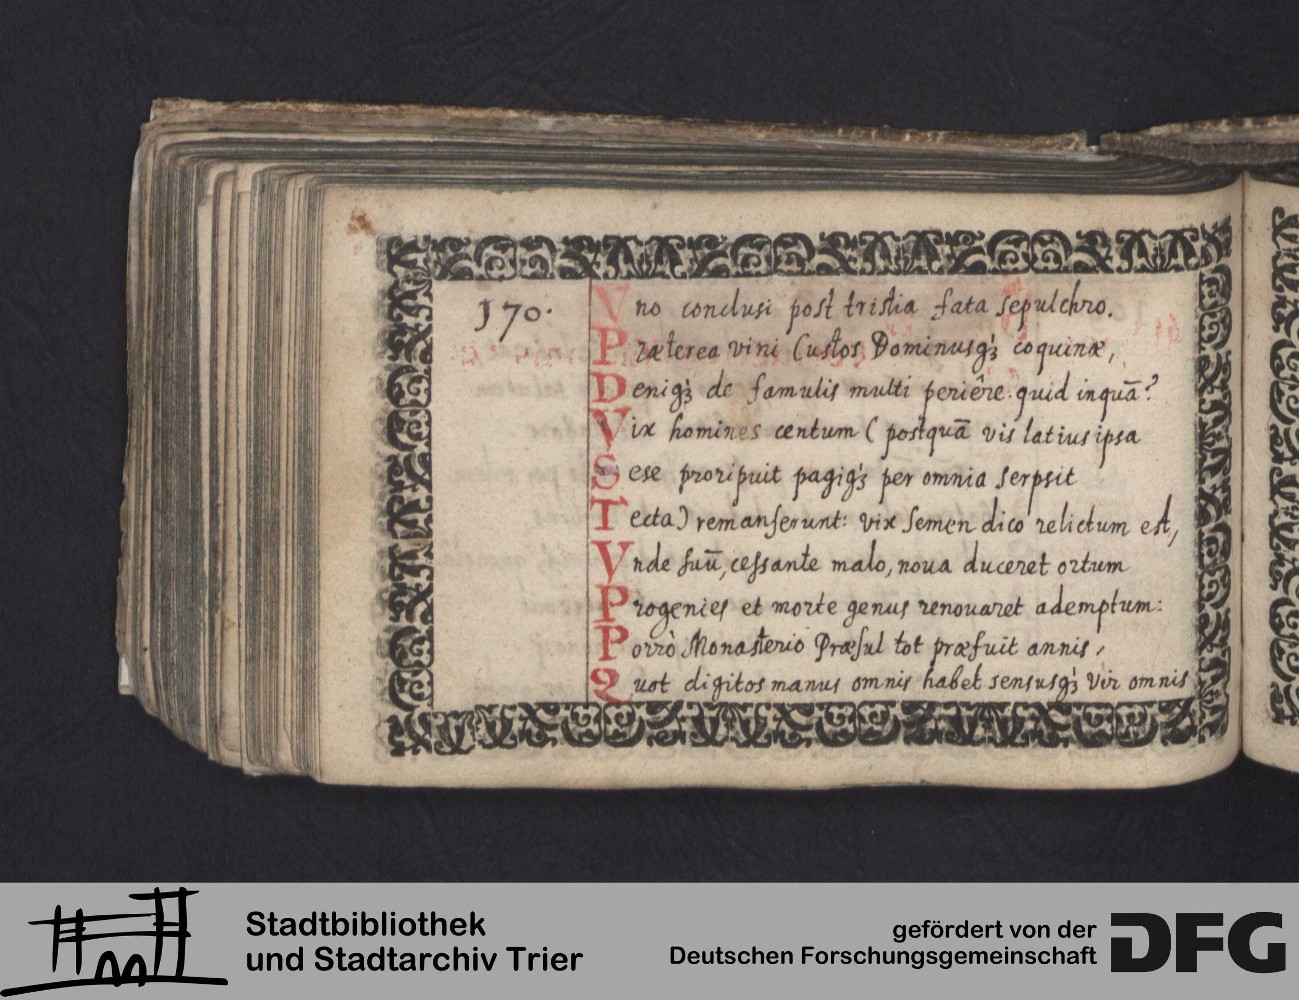 170.
Vno conclusi post tristia fata sepulchro.
Præterea vini Custos Dominusqꝫ coquinæ,
Deniqꝫ de famulis multi periêre. quid inquā?
Vix homines centum ( postquā vis latius ipsa
Sese proripuit pagiqꝫ per omnia serpsit
Tecta) remanserunt: vix semen dico relictum est,
Vnde suū, cessante malo, noua duceret ortum
Progenies et morte genus renouaret ademptum:
Porrò Monasterio Præsul tot præfuit annis,
Quot digitos manus omnis habet sensusqꝫ vir omnis
Stadtbibliothek
und Stadtarchiv Trier
gefördert von der
Deutschen Forschungsgemeinschaft
DFG